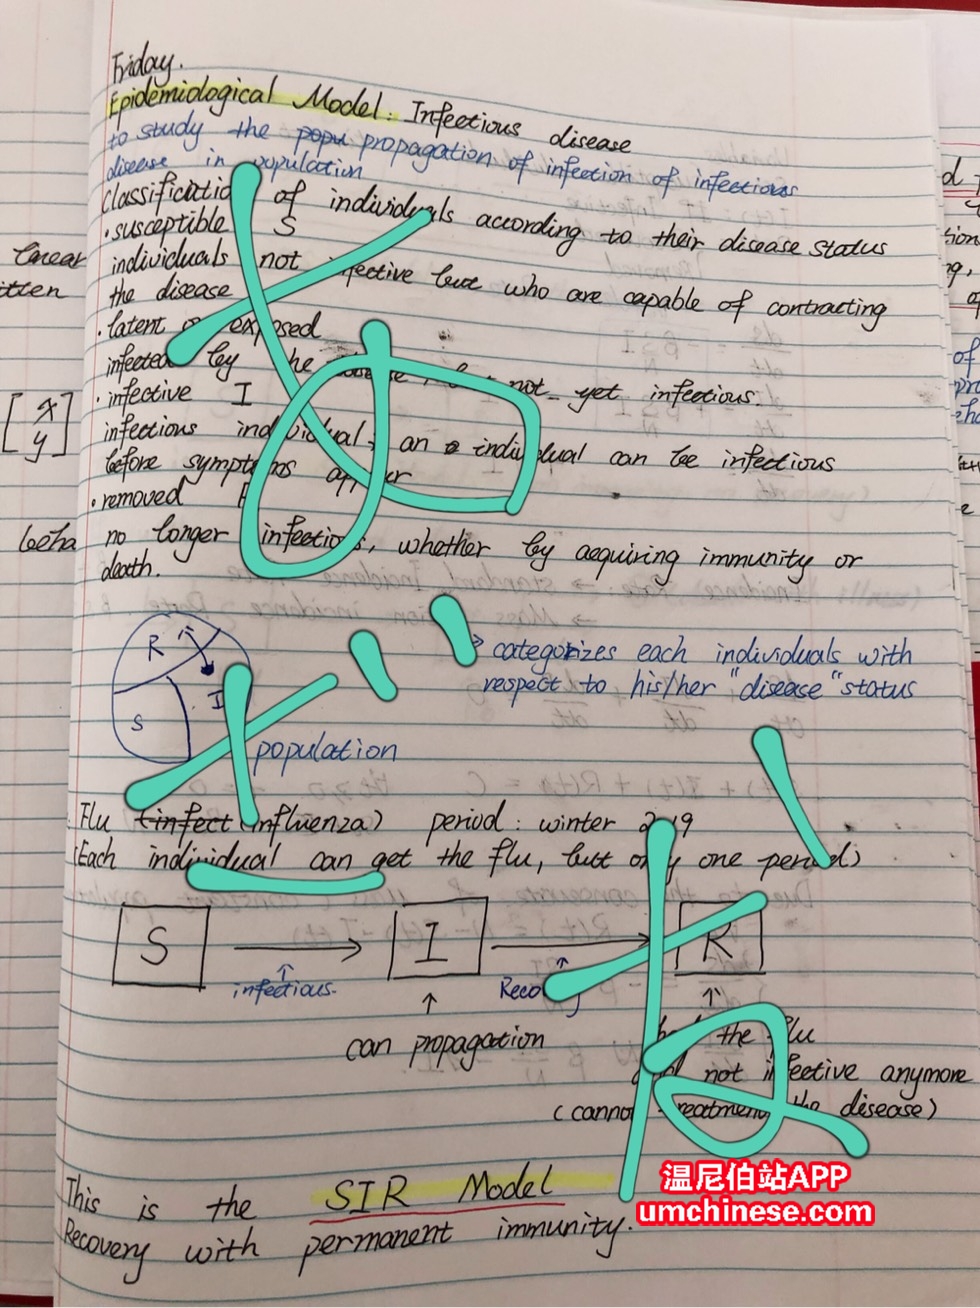 Friday.
Epidemiological Model: Infectious disease
to study the popu propagation of infection of infectious
disease in population
classification of individuals according to their disease status
• susceptible S
individuals not infective but who are capable of contracting
the disease
• latent or exposed
infected by the disease, but not yet infectious.
• infective I
infectious individual, an individual can be infectious
before symptoms appear
• removed R
no longer infectious, whether by acquiring immunity or
death.
R
I
S
population
categorizes each individuals with
respect to his/her "disease" status
Flu (infect (influenza) period: winter 2019
(Each individual can get the flu, but only one period)
S
I
R
infectious.
Recovery
can propagation
the flu
not infective anymore
(cannot treatment the disease)
This is the SIR Model
Recovery with permanent immunity.
linear
itten
[x
y]
beha
d
of
お
だ
い
ね
温尼伯站APP
umchinese.com